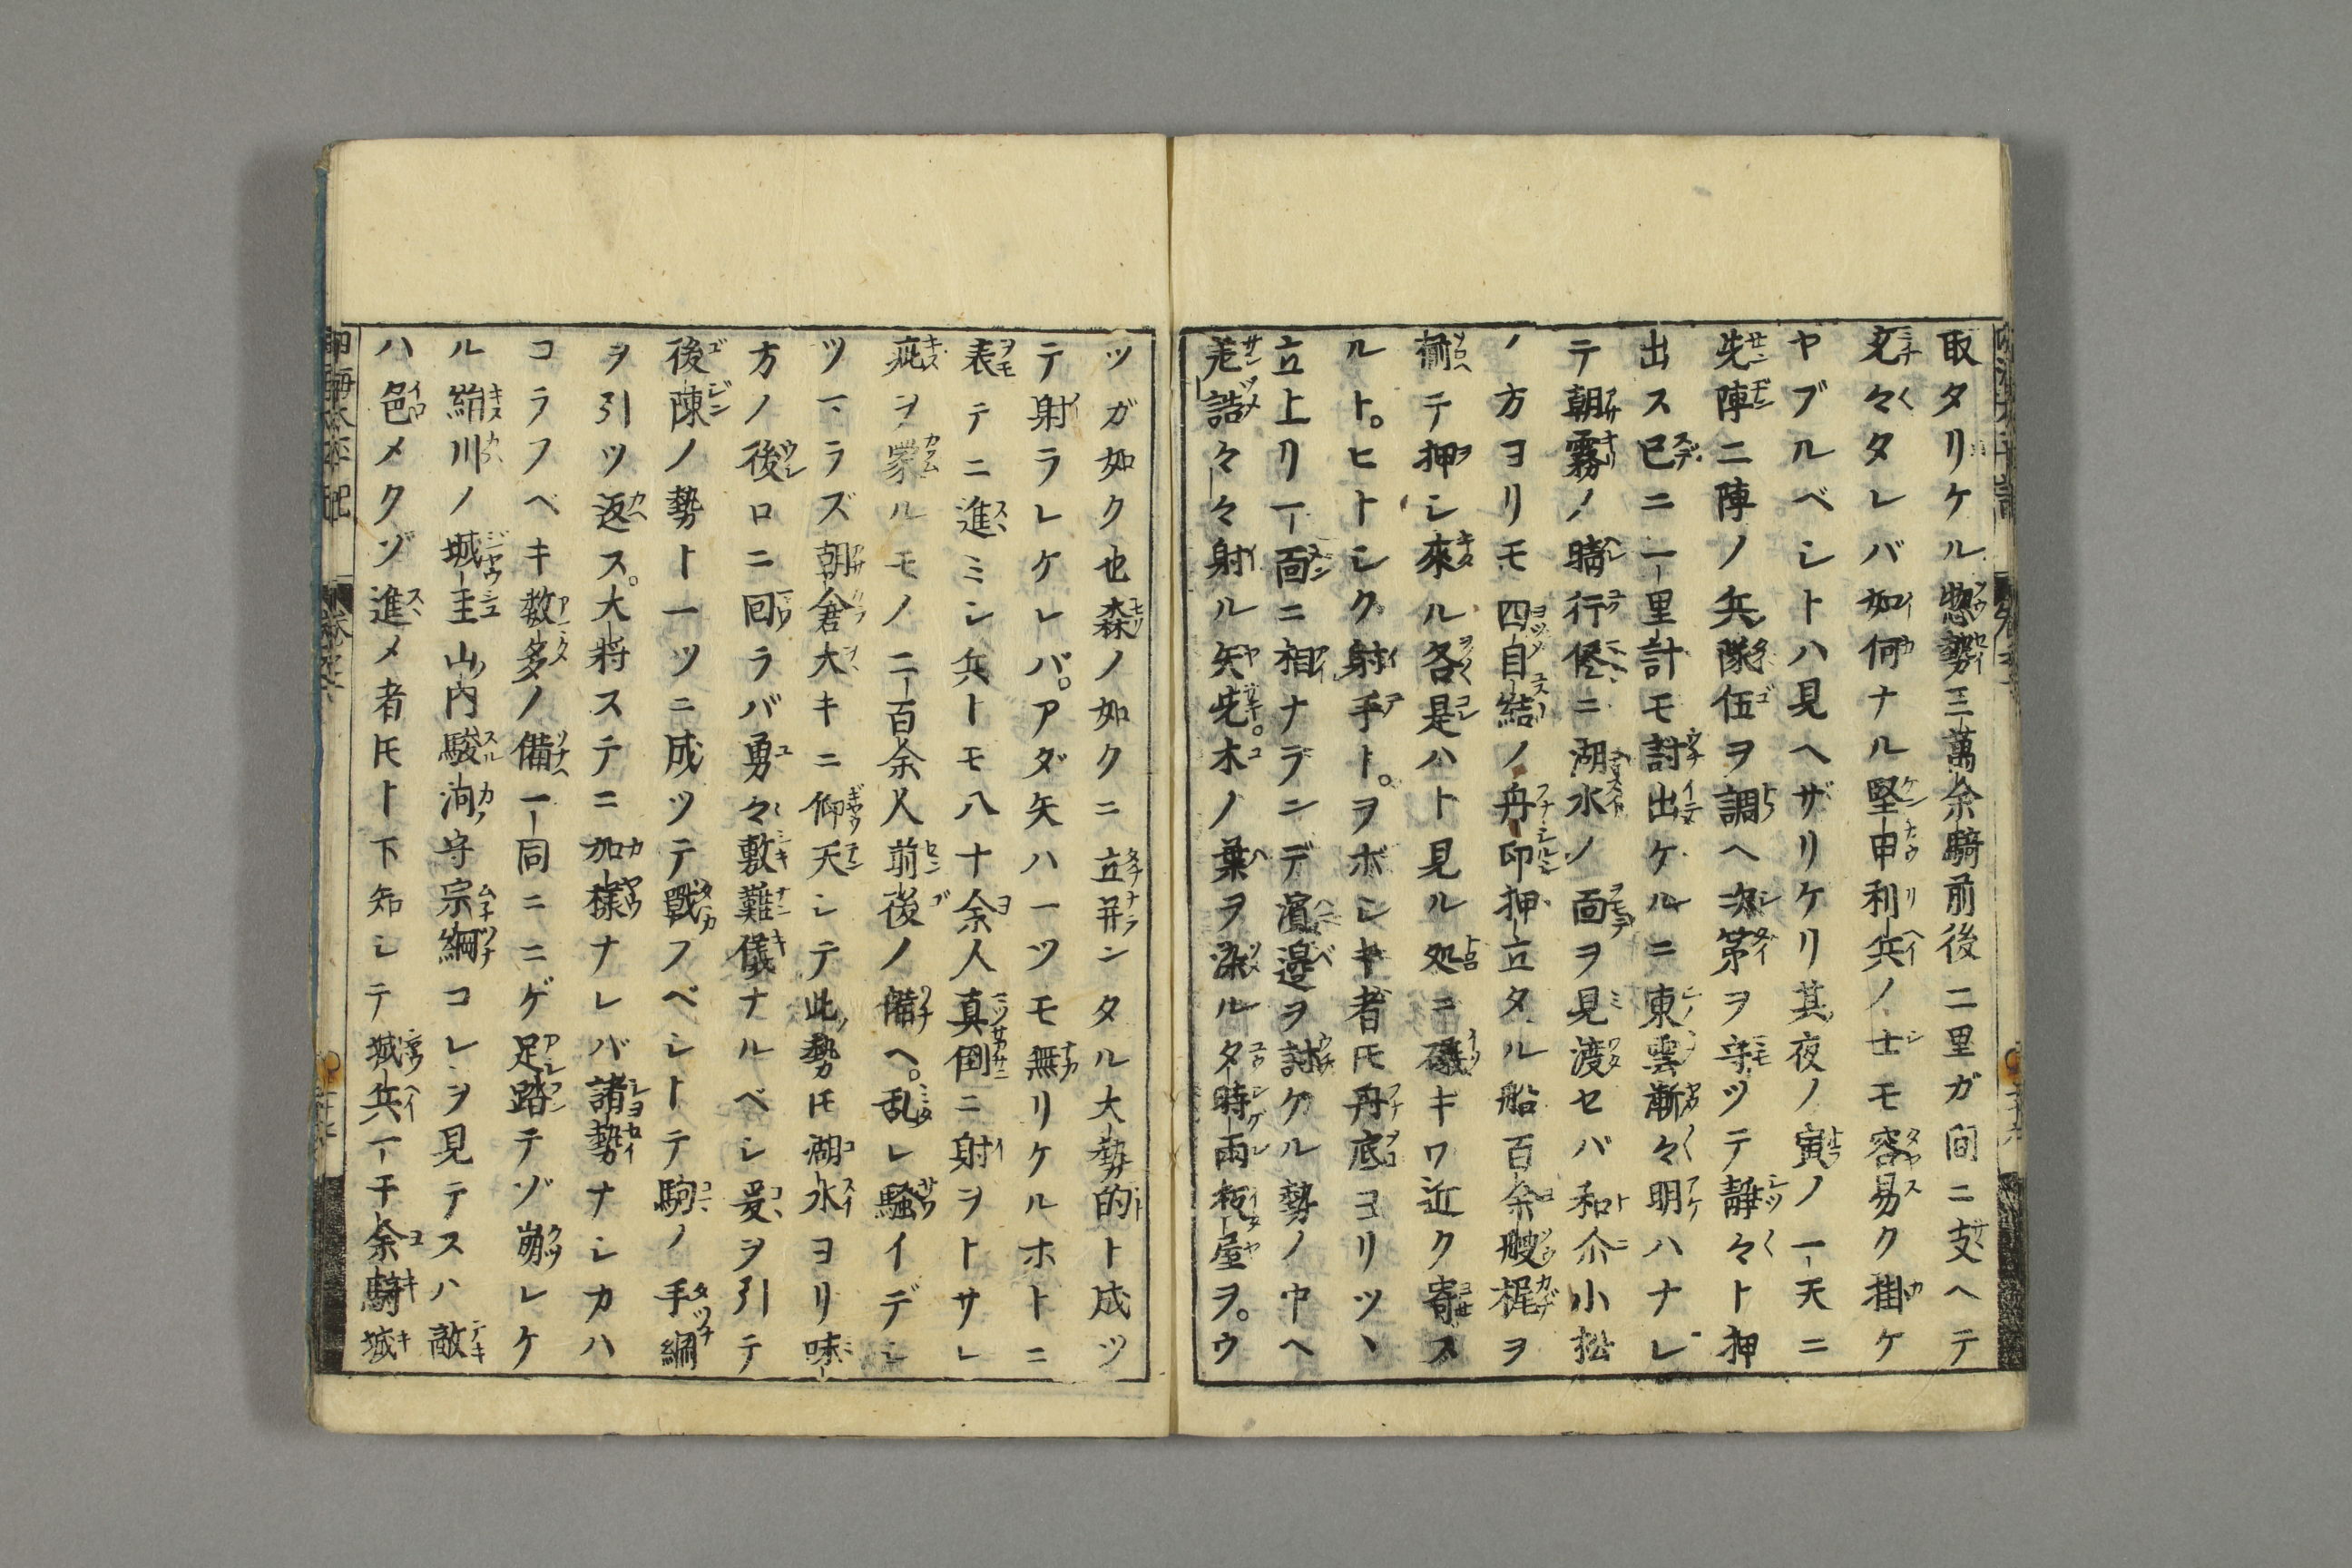 取タリケル惣勢三萬余騎前後二里ガ間ニ支ヘテ
充々タレバ如何ナル堅甲利兵ノ士モ容易ク掛ケ
ヤブルベシトハ見ヘザリケリ其夜ノ寅ノ一天ニ
先陣二陣ノ兵隊伍ヲ調ヘ次第ヲ守ツテ静々ト押
出ス已ニ一里計モ討出ケルニ東雲漸々明ハナレ
テ朝霧ノ晴行侭ニ湖水ノ面ヲ見渡セバ和尒小松
ノ方ヨリモ四自結ノ舟印押立タル船百余艘梶ヲ
揃テ押シ來ル各是ハト見ル処ニ磯ギワ近ク寄ス
ルト。ヒトシク射手ト。ヲボシキ者𪜈舟底ヨリツヽ
立上リ一面ニ相ナランデ濱邉ヲ討ケル勢ノ中ヘ
差詰々々射ル矢先。木ノ葉ヲ染ル夕時雨板屋ヲ。ウ
ツガ如ク也森ノ如クニ立并ンタル大勢的ト成ツ
テ射ラレケレバ。アダ矢ハ一ツモ無リケルホトニ
表テニ進ミシ兵トモ八十余人真倒ニ射ヲトサレ
疵ヲ蒙ルモノ二百余人前後ノ備ヘ。乱レ騒イデシ
ツマラズ朝倉大キニ仰天シテ此勢𪜈湖水ヨリ味
方ノ後ロニ回ラバ勇々敷難儀ナルベシ爰ヲ引テ
後陳ノ勢ト一ツニ成ツテ戰フベシトテ駒ノ手綱
ヲ引ツ返ス。大将ステニ加様ナレバ諸勢ナシカハ
コラフベキ数多ノ備一同ニニゲ足踏テゾ崩レケ
ル絹川ノ城主山内駿河守宗綱コレヲ見テスハ敵
ハ色メクゾ進メ者𪜈ト下知シテ城兵一千余騎城